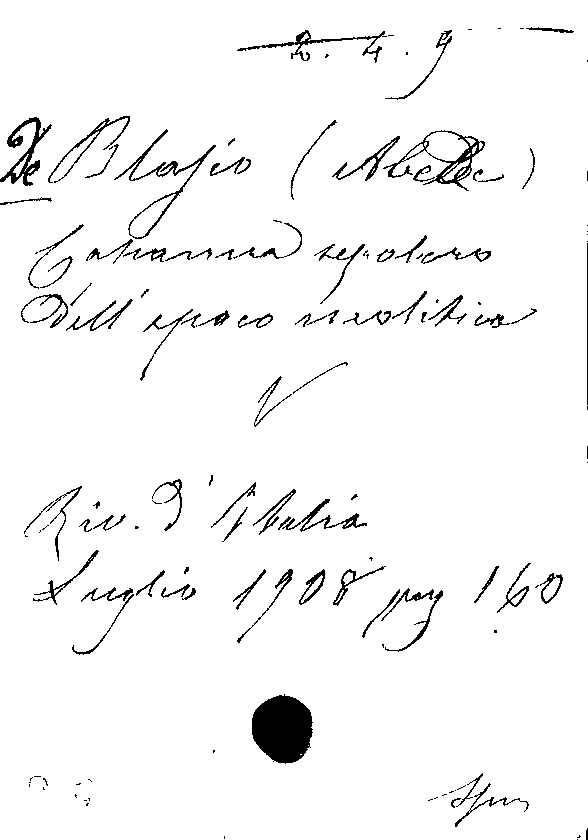 2. 4. 9
De Blasio (Abele)
Capanna sepolcro
dell' epoca neolitica
V
Riv. d' Italia
Luglio 1908 pag 160